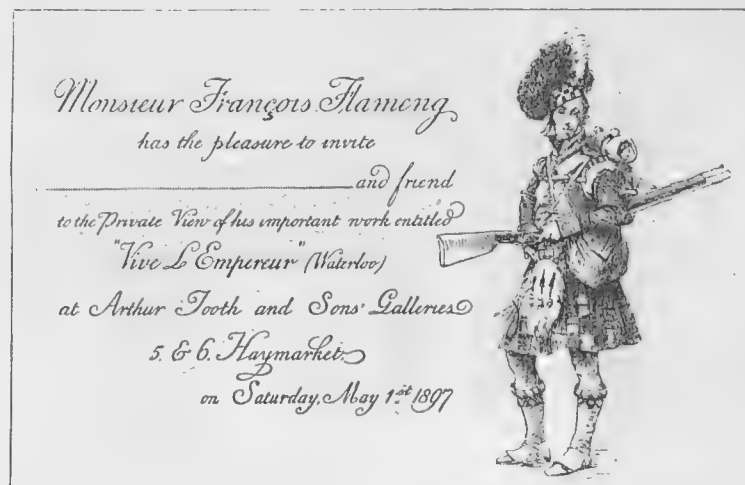 Monsieur François Flameng
has the pleasure to invite
and friend
to the Private View of his important work entitled
"Vive L'Empereur" (Waterloo)
at Arthur Tooth and Sons' Galleries
5. & 6. Haymarket.
on Saturday, May 1st 1897